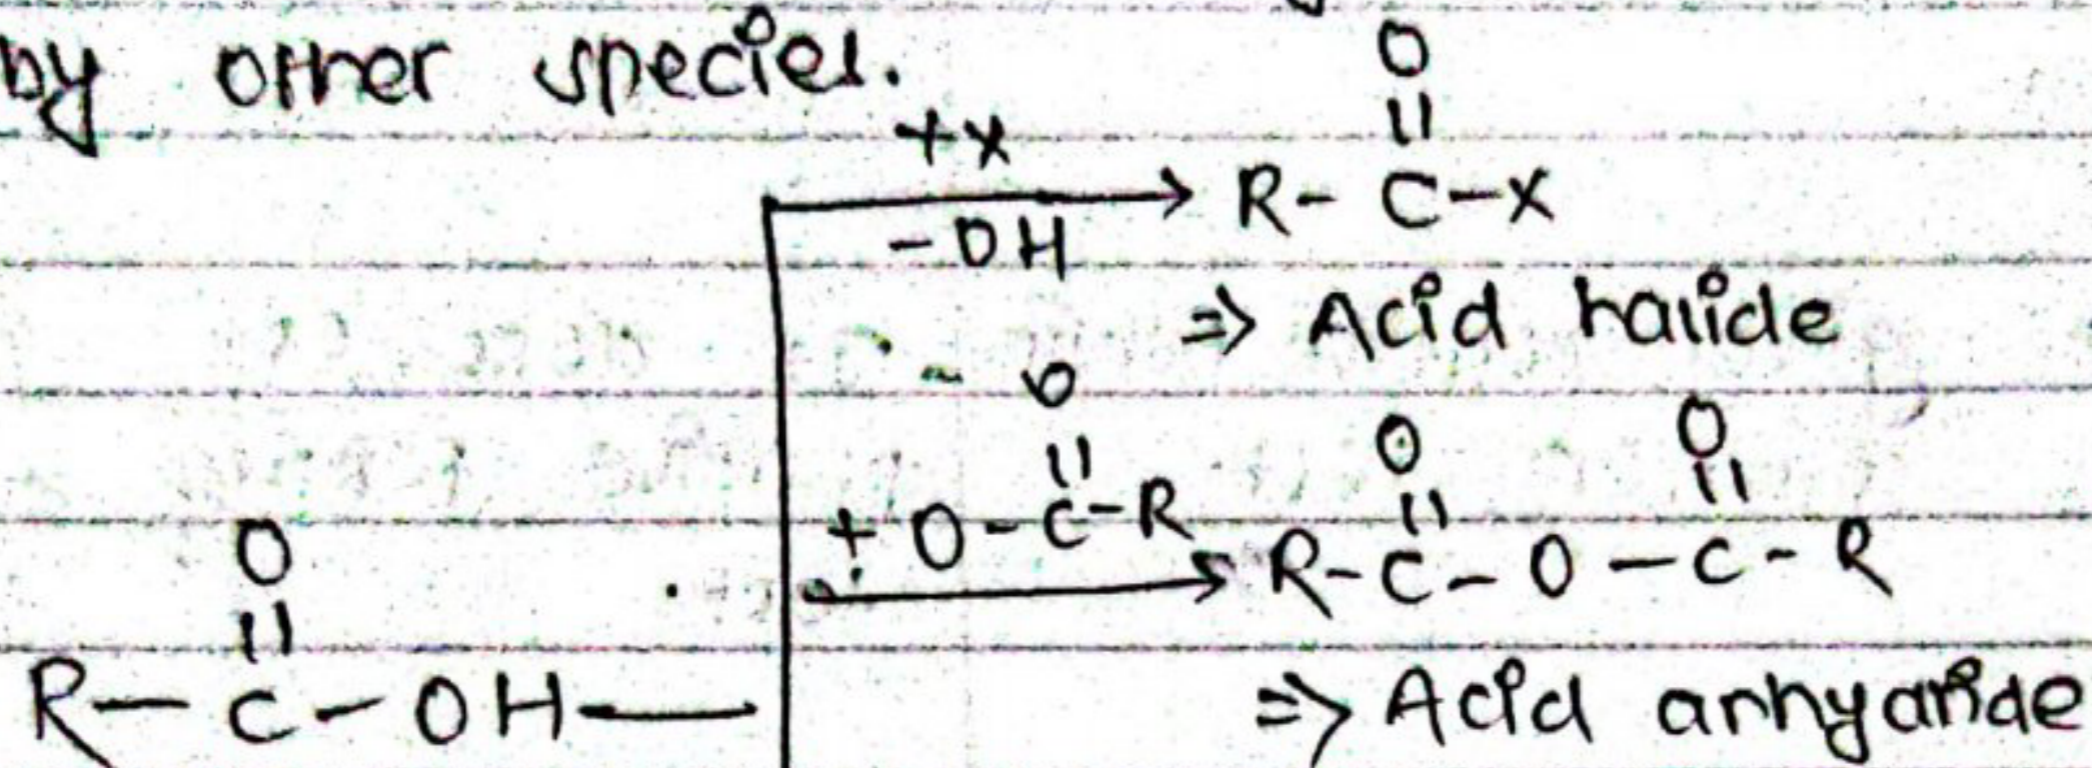 by other species.
O
||
+X
R- C-X
-OH
=> Acid halide
O
||
+ O-C-R
O O
|| ||
R-C-O-C-R
O
||
R-C-OH
=> Acid anhydride